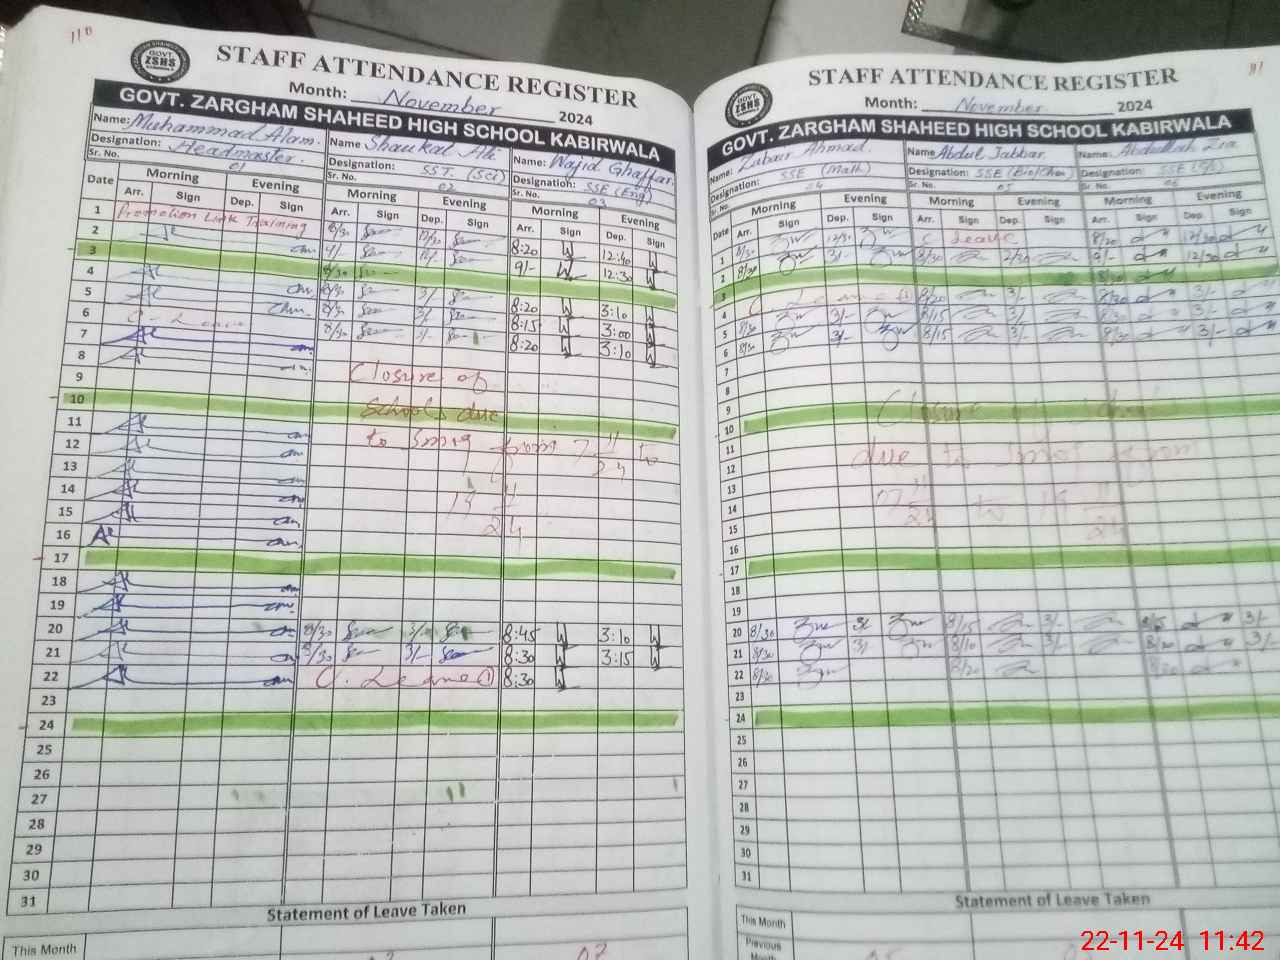 110
GOVT.
ZSHS
STAFF ATTENDANCE REGISTER
Month: November 2024
GOVT. ZARGHAM SHAHEED HIGH SCHOOL KABIRWALA
Name: Muhammad Alam. Name Shaukat Ali Name: Wajid Ghaffar
Designation: Headmaster. Designation: SST. (Sci) Designation: SSE (Eng)
Sr. No. 01 Sr. No. 02 Sr. No. 03
Date Morning Evening Morning Evening Morning Evening
Arr. Sign Dep. Sign Arr. Sign Dep. Sign Arr. Sign Dep. Sign
1 Promotion Link Training 8/30 12/30 8:20 12:40
2 9/- 9/- 12:30
3
4 8/30 3/- 8:20 3:10
5 8/30 8:15 3:00
6 C. Leave 8/30 8:20 3:10
7
8
9 Closure of
10 Schools due
11 to Smog from 7 11/24 to
12
13
14 19 11/24
15
16
17
18
19
20 8/30 3/- 8:45 3:10
21 8/30 3/- 8:30 3:15
22 C. Leave (1) 8:30
23
24
25
26
27
28
29
30
31
Statement of Leave Taken
This Month
111
GOVT.
ZSHS
STAFF ATTENDANCE REGISTER
Month: November 2024
GOVT. ZARGHAM SHAHEED HIGH SCHOOL KABIRWALA
Name: Zubair Ahmad. Name Abdul Jabbar. Name: Abdullah Zia
Designation: SSE (Math) Designation: SSE (Bio/Chem) Designation: SSE
Sr. No. 04 Sr. No. 05 Sr. No. 06
Date Morning Evening Morning Evening Morning Evening
Arr. Sign Dep. Sign Arr. Sign Dep. Sign Arr. Sign Dep. Sign
1 8/30 12/30 C Leave 8/20 12/30
2 8/30 3/- 8/30 9/- 12/30
3 8/30
4 C Leave (1) 8/20 3/- 8/30 3/-
5 8/30 3/- 8/15 3/- 3/-
6 8/30 3/- 8/15 3/- 8/30 3/-
7
8
9 Closure of Schools
10
11 due to Smog from
12
13 07 11/24 to 19 11/24
14
15
16
17
18
19
20 8/30 3/- 8/15 3/- 3/-
21 8/30 3/- 8/10 3/- 8/20 3/-
22 8/30 8/20
23
24
25
26
27
28
29
30
31
Statement of Leave Taken
This Month
Previous Month
22-11-24 11:42